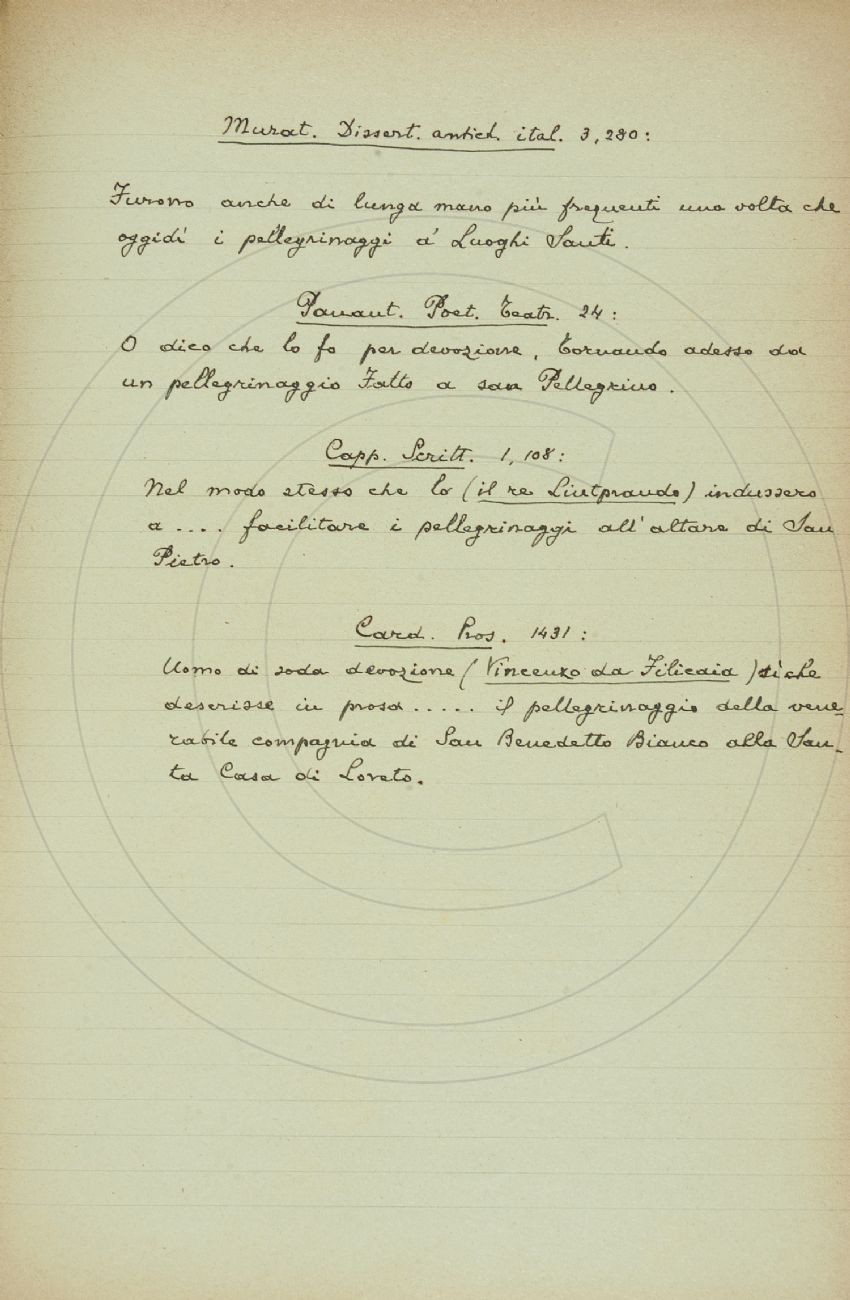 Murat. Dissert. antich. ital. 3, 280:
Furono anche di lunga mano più frequenti una volta che
oggidì i pellegrinaggi a' Luoghi Santi.
Panant. Poet. Teatr. 24:
O dico che lo fo per devozione, tornando adesso da
un pellegrinaggio Fatto a san Pellegrino.
Capp. Scritt. 1, 108:
Nel modo stesso che lo (il re Liutprando) indussero
a .... facilitare i pellegrinaggi all'altare di San
Pietro.
Card. Pros. 1431:
Uomo di soda devozione (Vincenzo da Filicaia) sì che
descrisse in prosa ..... il pellegrinaggio della vene-
rabile compagnia di San Benedetto Bianco alla San-
ta Casa di Loreto.